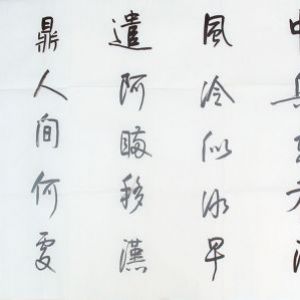 風冷似冰早
遣阿瞞移漢
鼎人間何處